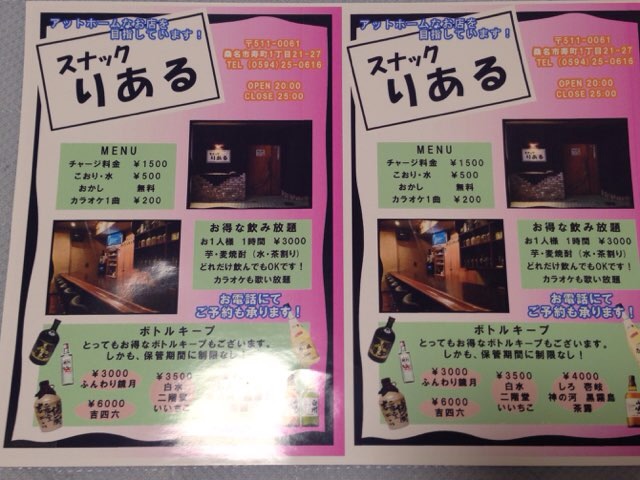 アットホームなお店を
目指しています！
スナック
りある
〒511-0061
桑名市寿町1丁目21-27
TEL (0594) 25-0616
OPEN 20:00
CLOSE 25:00
MENU
チャージ料金 ¥1500
こおり・水 ¥500
おかし 無料
カラオケ1曲 ¥200
お得な飲み放題
お1人様 1時間 ¥3000
芋・麦焼酎（水・茶割り）
どれだけ飲んでもOKです！
カラオケも歌い放題
お電話にて
ご予約も承ります！
ボトルキープ
とってもお得なボトルキープもございます。
しかも、保管期間に制限なし！
¥3000
ふんわり鏡月
¥6000
吉四六
¥3500
白水
二階堂
いいちこ
アットホームなお店を
目指しています！
スナック
りある
〒511-0061
桑名市寿町1丁目21-27
TEL (0594) 25-0616
OPEN 20:00
CLOSE 25:00
MENU
チャージ料金 ¥1500
こおり・水 ¥500
おかし 無料
カラオケ1曲 ¥200
お得な飲み放題
お1人様 1時間 ¥3000
芋・麦焼酎（水・茶割り）
どれだけ飲んでもOKです！
カラオケも歌い放題
お電話にて
ご予約も承ります！
ボトルキープ
とってもお得なボトルキープもございます。
しかも、保管期間に制限なし！
¥3000
ふんわり鏡月
¥6000
吉四六
¥3500
白水
二階堂
いいちこ
¥4000
しろ 壱岐
神の河 黒霧島
茶露